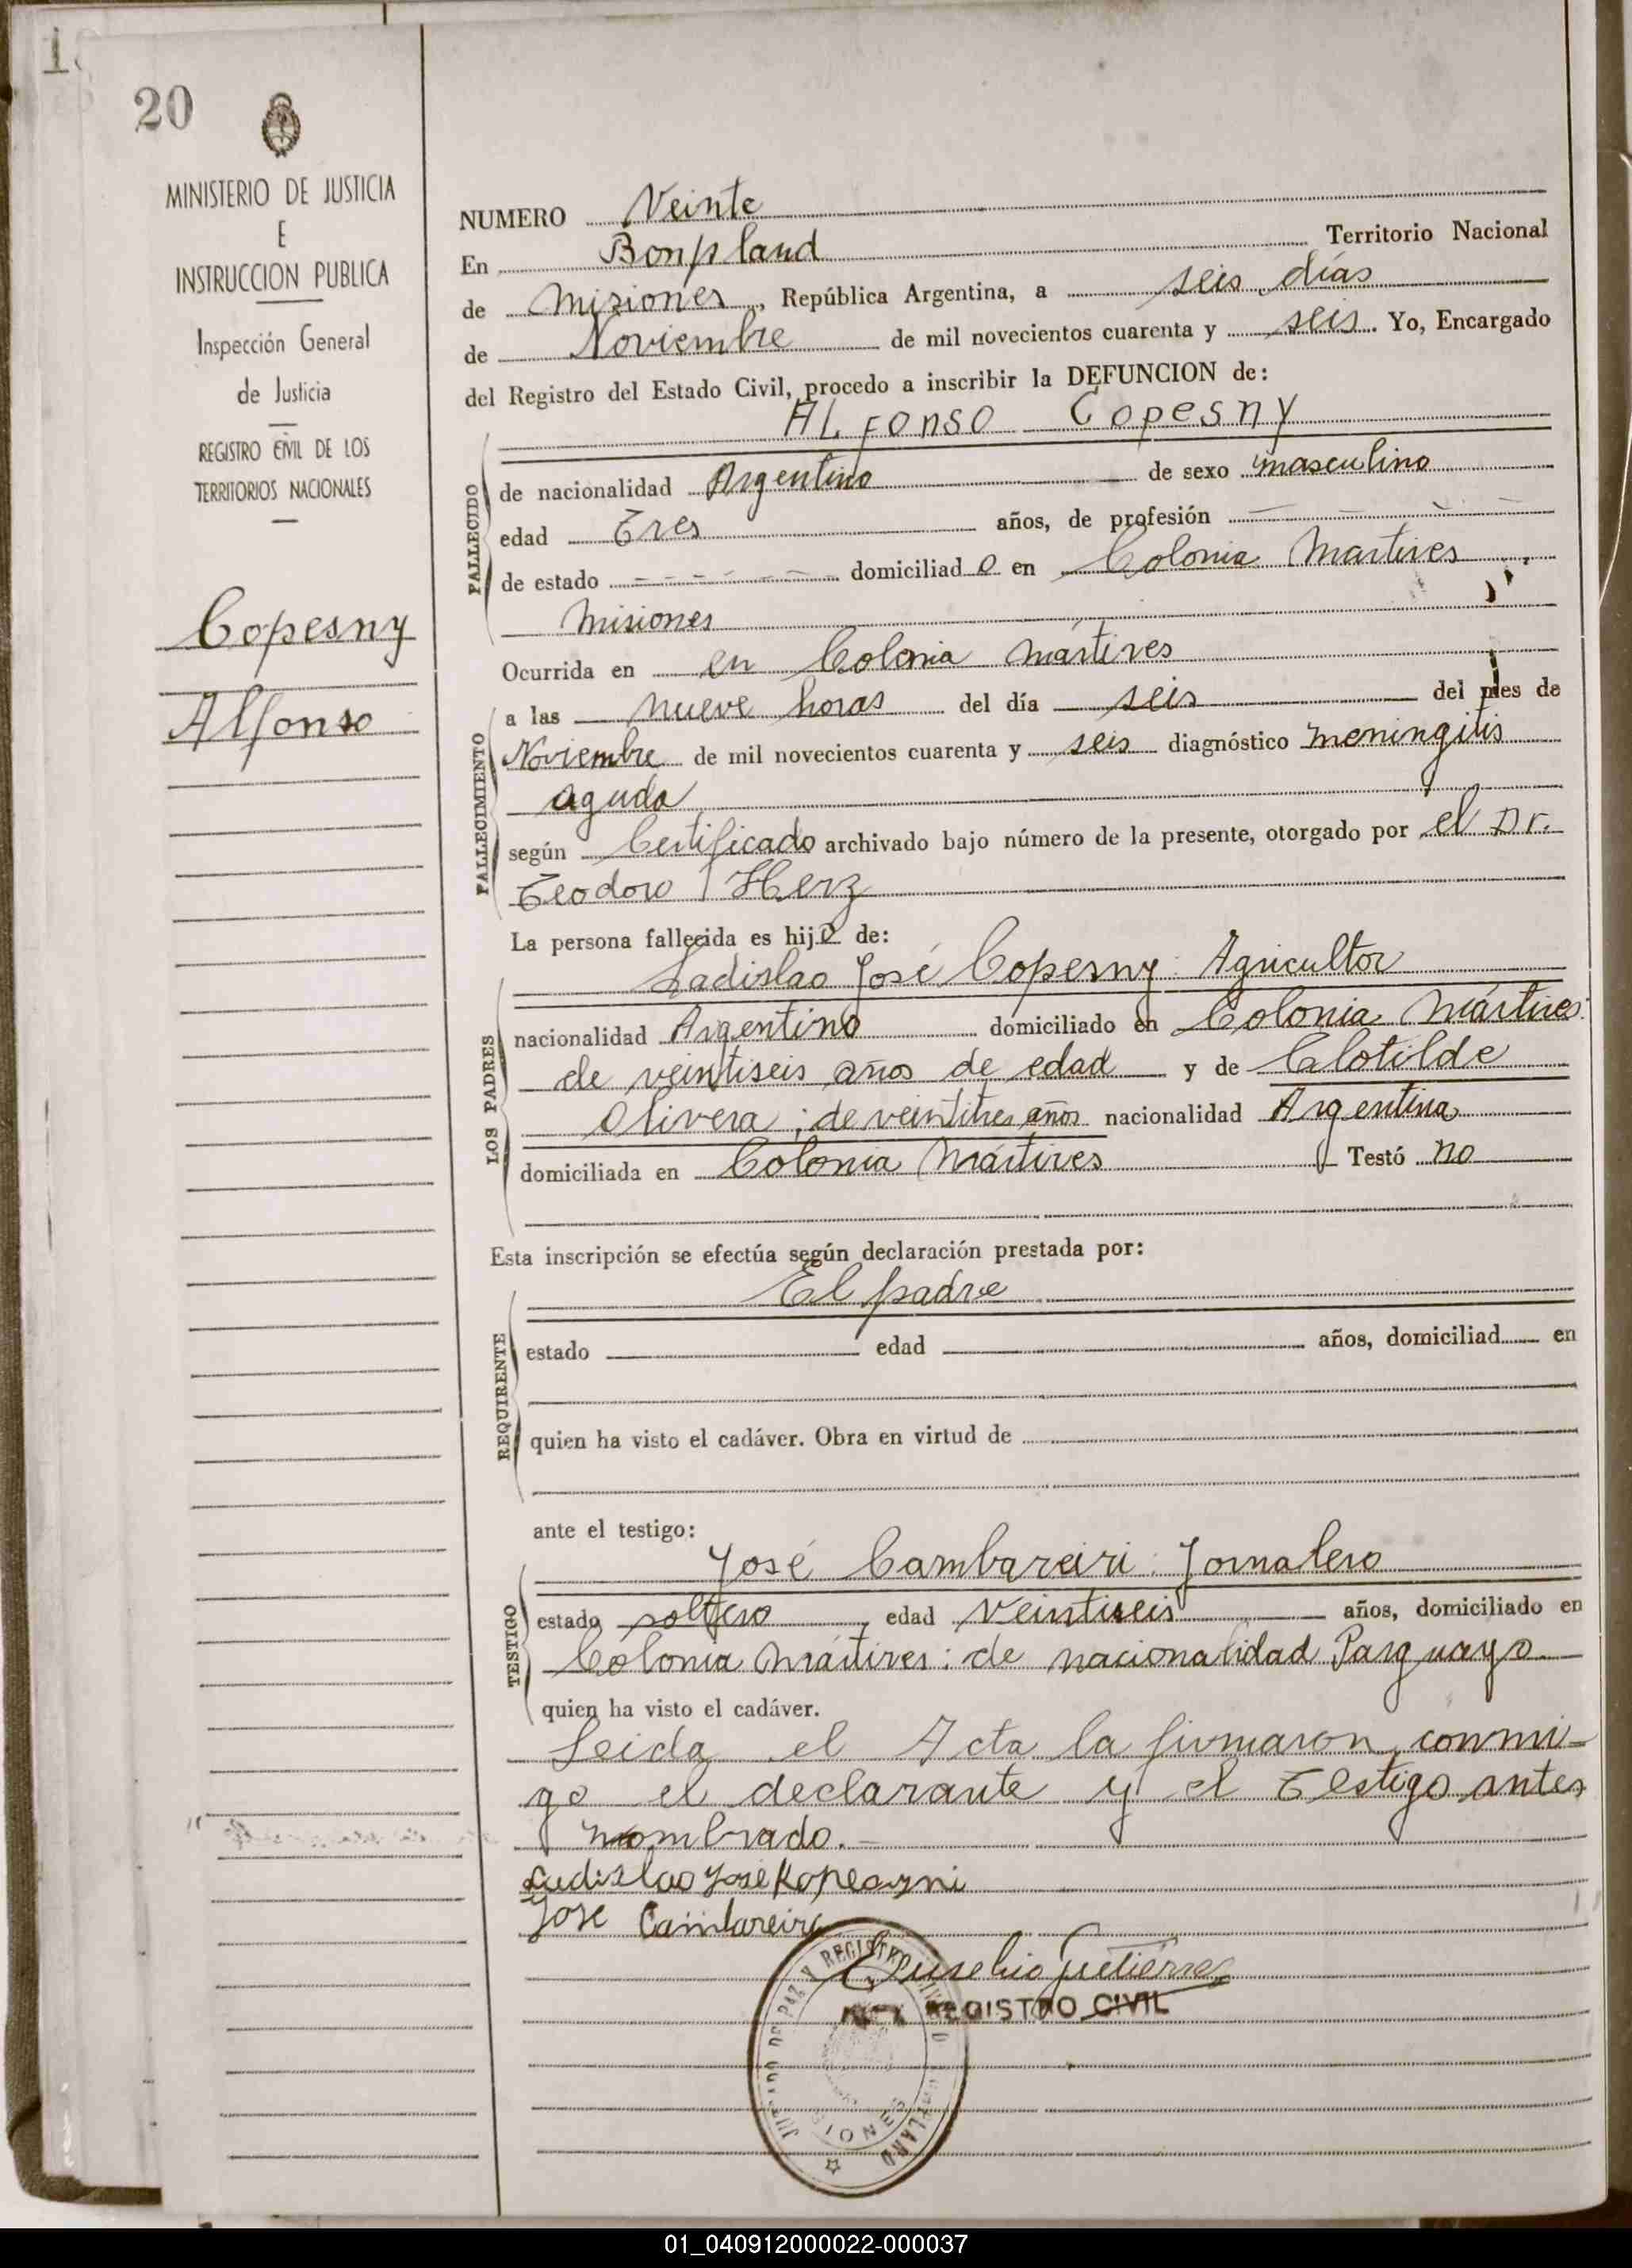 20
MINISTERIO DE JUSTICIA
E
INSTRUCCION PUBLICA
Inspección General
de Justicia
REGISTRO CIVIL DE LOS
TERRITORIOS NACIONALES
Copesny
Alfonso
NUMERO Veinte
En Bonpland Territorio Nacional
de Misiones, República Argentina, a seis días
de Noviembre de mil novecientos cuarenta y seis. Yo, Encargado
del Registro del Estado Civil, procedo a inscribir la DEFUNCION de:
ALFONSO COPESNY
FALLECIDO
de nacionalidad Argentino de sexo masculino
edad Tres años, de profesión - - - -
de estado - - - - - - domiciliado en Colonia Martires
Misiones
Ocurrida en en Colonia Mártires
FALLECIMIENTO
a las nueve horas del día seis del mes de
Noviembre de mil novecientos cuarenta y seis diagnóstico meningitis
aguda
según Certificado archivado bajo número de la presente, otorgado por el Dr.
Teodoro J Herz
La persona fallecida es hijo de:
LOS PADRES
Ladislao José Copesny: Agricultor
nacionalidad Argentino domiciliado en Colonia Mártires:
de veintiseis años de edad y de Clotilde
Olivera; de veintitres años nacionalidad Argentina
domiciliada en Colonia Mártires Testó no
Esta inscripción se efectúa según declaración prestada por:
REQUIRENTE
El padre
estado edad años, domiciliad en
quien ha visto el cadáver. Obra en virtud de
ante el testigo:
TESTIGO
José Cambareiri: Jornalero
estado soltero, edad veintiseis años, domiciliado en
Colonia Mártires: de nacionalidad Parguayo
quien ha visto el cadáver.
Leida el Acta la firmaron conmi-
go el declarante y el Testigo antes
nombrado.-
Ladislao José Kopeczni
Jose Cambareiri
Eusebio Gutiérrez
REGISTRO CIVIL
JUZGADO DE PAZ Y REGISTRO CIVIL
BONPLAND
MISIONES
01_040912000022-000037